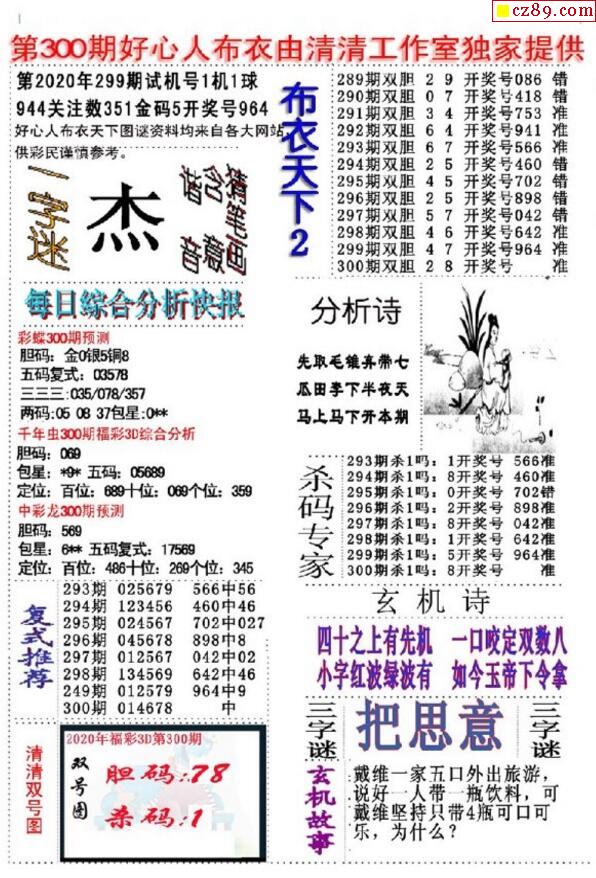 cz89.com
第300期好心人布衣由清清工作室独家提供
第2020年299期试机号1机1球
944关注数351金码5开奖号964
好心人布衣天下图谜资料均来自各大网站,
供彩民谨慎参考。
一字谜
杰
猜笔画
含意
谐音
布衣天下2
289期双胆 2 9 开奖号086 错
290期双胆 0 7 开奖号418 错
291期双胆 3 4 开奖号753 准
292期双胆 6 4 开奖号941 准
293期双胆 6 7 开奖号566 准
294期双胆 2 5 开奖号460 错
295期双胆 4 5 开奖号702 错
296期双胆 2 5 开奖号898 错
297期双胆 5 7 开奖号042 错
298期双胆 4 6 开奖号642 准
299期双胆 4 7 开奖号964 准
300期双胆 2 8 开奖号 准
每日综合分析快报
彩蝶300期预测
胆码：金0银5铜8
五码复式：03578
三三三:035/078/357
两码:05 08 37包星:0**
千年虫300期福彩3D综合分析
胆码：069
包星：*9* 五码：05689
定位：百位：689十位：069个位：359
中彩龙300期预测
胆码：569
包星：6** 五码复式：17569
定位：百位：486十位：269个位：345
分析诗
先取毛锥弃带七
瓜田李下半夜天
马上马下开本期
杀码专家
293期杀1吗：1开奖号 566准
294期杀1吗：8开奖号 460准
295期杀1吗：0开奖号 702错
296期杀1吗：2开奖号 898准
297期杀1吗：8开奖号 042准
298期杀1吗：1开奖号 642准
299期杀1吗：5开奖号 964准
300期杀1吗：8开奖号 准
复式推荐
293期 025679 566中56
294期 123456 460中46
295期 024567 702中027
296期 045678 898中8
297期 012567 042中02
298期 134569 642中46
249期 012579 964中9
300期 014678 中
玄机诗
四十之上有先机 一口咬定双数八
小字红波绿波有 如今玉帝下令拿
三字谜
把思意
三字谜
清清双号图
2020年福彩3D第300期
双号图
胆码:78
杀码:1
玄机故事
戴维一家五口外出旅游，
说好一人带一瓶饮料，可
戴维坚持只带4瓶可口可
乐，为什么？